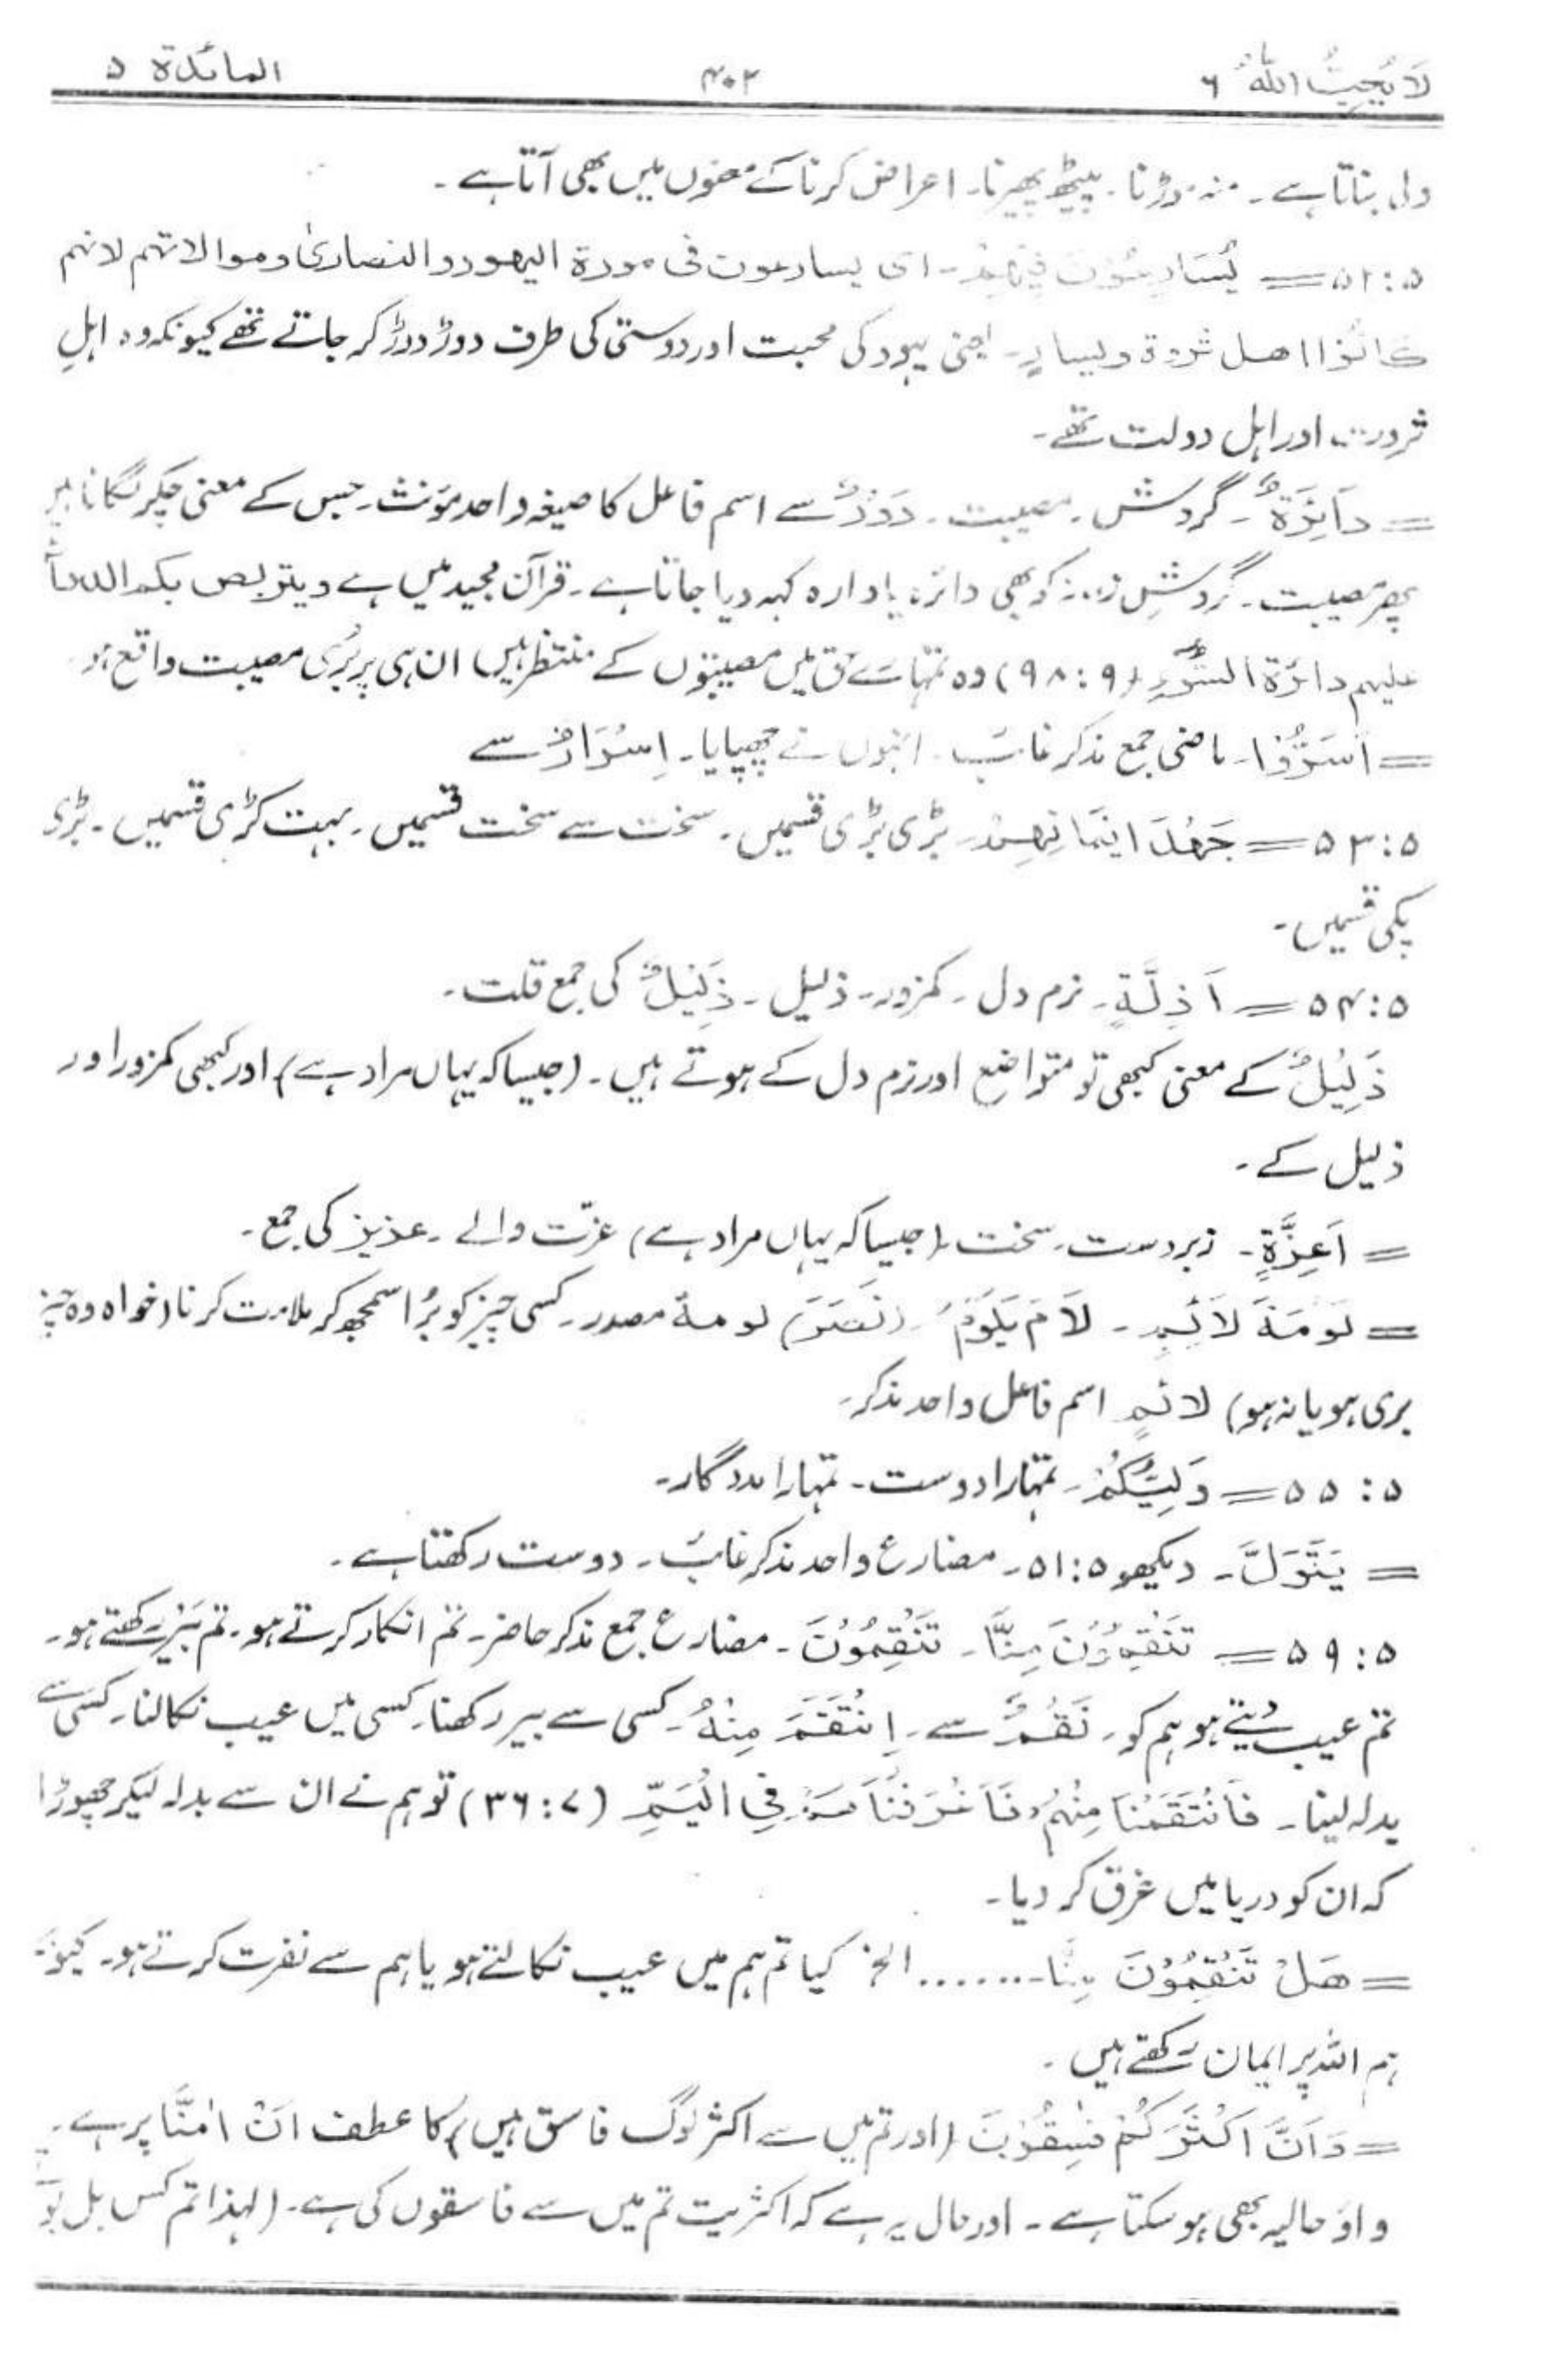 لَا يُحِبُّ اللّٰهُ ۶ ۴۰۳ المائدة ۵
ولی بناتا ہے ۔ منہ موڑنا ۔ پیٹھ پھیرنا ۔ اعراض کرنا کے معنوں میں بھی آتا ہے ۔
۵:۵۲ = يُسَارِعُوْنَ فِيْهِمْ ۔ ای یسارعون فی مودة الیھود والنصاریٰ وموالاتہم لانہم
كَانُوْا اھل ثروة ویسارٍ۔ یعنی یہود کی محبت اور دوستی کی طرف دوڑ دوڑ کر جاتے تھے کیونکہ وہ اہلِ
ثروت اور اہل دولت تھے ۔
= دَآئِرَةٌ ۔ گردش ۔ مصیبت ۔ دَوْرٌ سے اسم فاعل کا صیغہ واحد مؤنث ۔ جس کے معنی چکر لگانا ہیں
پھر مصیبت ۔ گردشِ زمانہ کو بھی دائرہ یا دارہ کہہ دیا جاتا ہے ۔ قرآن مجید میں ہے ویتربص بکم الدوائر
علیہم دائرة السَّوْءِ (۹۸:۹) وہ تمہارے حق میں مصیبتوں کے منتظر ہیں ان ہی پر بُری مصیبت واقع ہو
= اَسَرُّوْا ۔ ماضی جمع مذکر غائب ۔ انہوں نے چھپایا ۔ اِسْرَارٌ سے
۵۳:۵ = جَهْدَ اَيْمَانِهِمْ ۔ بڑی بڑی قسمیں ۔ سخت سے سخت قسمیں ۔ بہت کڑی قسمیں ۔ بڑی
پکی قسمیں ۔
۵۴:۵ = اَذِلَّةٍ ۔ نرم دل ۔ کمزور ۔ ذلیل ۔ ذَلِيْلٌ کی جمع قلت ۔
ذَلِيْلٌ کے معنی کبھی تو متواضع اور نرم دل کے ہوتے ہیں ۔ (جیسا کہ یہاں مراد ہے) اور کبھی کمزور اور
ذلیل کے ۔
= اَعِزَّةٍ ۔ زبردست ۔ سخت ۔ (جیسا کہ یہاں مراد ہے) عزّت والے ۔ عزیز کی جمع ۔
= لَوْمَةَ لَآئِمٍ ۔ لَامَ يَلُوْمُ (نَصَرَ) لومةٌ مصدر ۔ کسی چیز کو بُرا سمجھ کر ملامت کرنا (خواہ وہ چیز
بری ہو یا نہ ہو) لائمٍ اسم فاعل واحد مذکر ۔
۵۵:۵ = وَلِيُّكُمْ ۔ تمہارا دوست ۔ تمہارا مددگار ۔
= يَتَوَلَّ ۔ دیکھو ۵:۵۱ ۔ مضارع واحد مذکر غائب ۔ دوست رکھتا ہے ۔
۵۹:۵ = تَنْقِمُوْنَ مِنَّا ۔ تَنْقِمُوْنَ ۔ مضارع جمع مذکر حاضر ۔ تم انکار کرتے ہو ۔ تم بَیر رکھتے ہو ۔
تم عیب دیتے ہو ہم کو ۔ نَقْمٌ سے ۔ اِنْتَقَمَ مِنْهُ ۔ کسی سے بیر رکھنا ۔ کسی میں عیب نکالنا ۔ کسی سے
بدلہ لینا ۔ فَانْتَقَمْنَا مِنْهُمْ فَاَغْرَقْنٰهُمْ فِي الْيَمِّ (۱۳۶:۷) تو ہم نے ان سے بدلہ لیکر چھوڑا
کہ ان کو دریا میں غرق کر دیا ۔
= هَلْ تَنْقِمُوْنَ مِنَّا ۔۔۔۔۔۔۔ الخ کیا تم ہم میں عیب نکالتے ہو یا ہم سے نفرت کرتے ہو ۔
ہم اللہ پر ایمان رکھتے ہیں ۔
= وَاَنَّ اَكْثَرَكُمْ فٰسِقُوْنَ (اور تم میں سے اکثر لوگ فاسق ہیں) کا عطف اَنْ اٰمَنَّا پر ہے ۔
واؤ حالیہ بھی ہو سکتا ہے ۔ اور حال یہ ہے کہ اکثریت تم میں سے فاسقوں کی ہے ۔ (لہٰذا تم کس بل